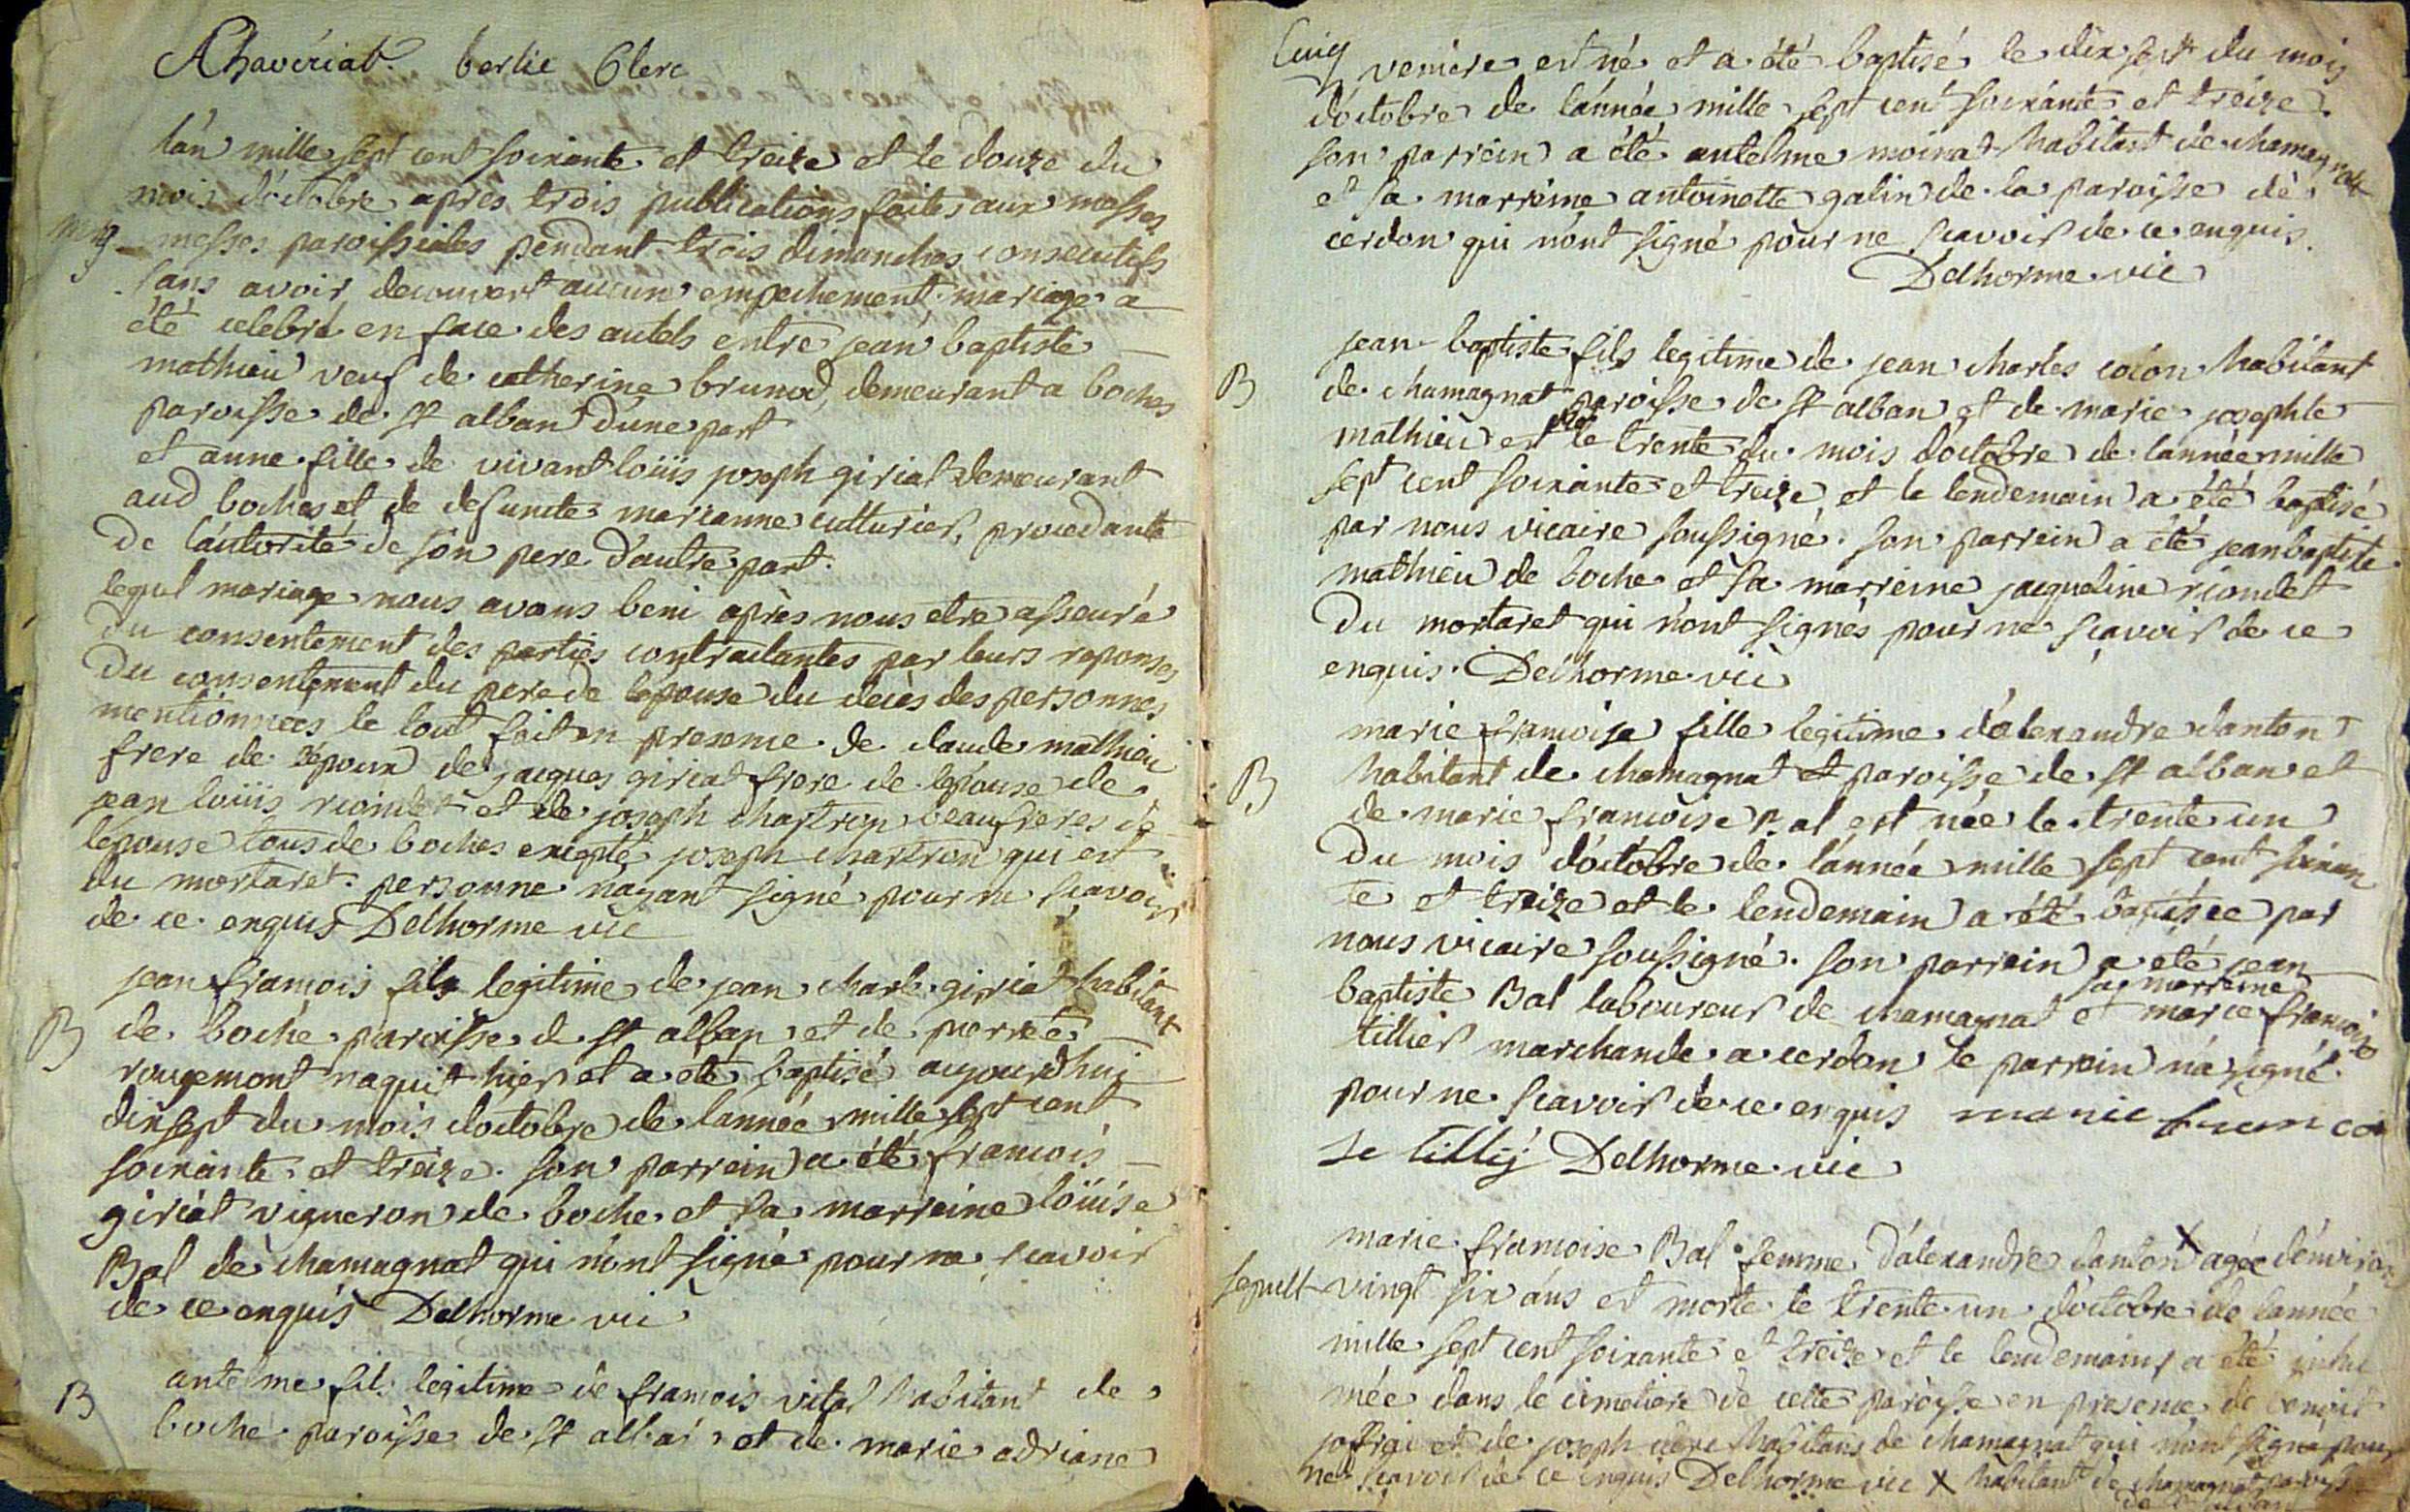 Chaveriat. berlie Clerc
lán mille sept cent soixante et treize et le douze du
mois doctobre apres trois publications faites aux messes
mg messes paroissiales pendant trois dimanches consecutifs
sans avoir decouvert aucun empechement mariage a
été celebré en face des autels entre jean baptiste
mathieu veuf de catherine brunod, demeurant a boches
paroisse de st alban dune part
et anne fille de vivant loüis joseph giriat demeurant
aud boches et de defuncte marianne cutturier, procedante
de láutorité de son pere dáutre part.
lequel mariage nous avons beni après nous etre asseuré
du consentement des parties contractantes par leurs reponses
du consentement du pere de lépouse du decès des personnes
mentionnees le tout fait en presence de claude mathieu
frere de lépoux de jacques giriat frere de lepouse de
jean loüis riondet et de joseph chartron beaufreres de
lépouse tous de boches excepté joseph chartron qui est
du mortaret. personne náyant signé pour ne scavoir
de ce enquis Delhorme vic
jean francois fils legitime de jean charle giriat habitant
B de boche paroisse de st alban et de perrete
rougemont naquit hier et a eté baptisé aujourdhui
dixsept du mois doctobre de lannée mille sept cent
soixante et treize. son parrein a été francois
giriat vigneron de boche et sa marreine loüise
Bal de chamagnat qui nónt signé pour ne scavoir
de ce enquis Delhorme vic
antelme fils legitime de francois vital habitant de
B boche paroisse de st alban et de marie adriane
Cuiq veniere est né et a été baptisé le dix sept du mois
dóctobre de lánnée mille sept cent soixante et treize.
son parrein a été antelme moinat habitant de chamagnat
et sa marreine antoinette galin de la paroisse de
cerdon qui nónt signé pour ne scavoir de ce enquis.
Delhorme vic
jean baptiste fils legitime de jean charles cocon habitant
B de chamagnat paroisse de st alban et de marie josephte
mathieu est né le trente du mois doctobre de lannée mille
sept cent soixante et treize et le lendemain a été baptisé
par nous vicaire soussigné. son parrein a été jean baptiste
mathieu de boche et sa marreine jacqueline riondet
du mortaret qui nónt signés pour ne scavoir de ce
enquis. Delhorme vic
marie francoise fille legitime dálexandre danton
B habitant de chamagnat et paroisse de st alban et
de marie francoise Bal est née le trente un
du mois dóctobre de lánnée mille sept cent soixan
te et treize et le lendemain a été baptisée par
nous vicaire soussigné. son parrein a eté jean
baptiste Bal laboureur de chamagnat et sa marreine marie francoise
tillier marchande a cerdon le parrein ná signé
pour ne scavoir de ce enquis marie francoi
se tilliy Delhorme vic
marie francoise Bal femme dálexandre danton X agée dénviron
sepult vingt six áns est morte le trente un dóctobre de lánnée
mille sept cent soixante et treize et le lendemain a été inhu
mée dans le cimetiere de cette paroisse en presence de benoit
joffrai et de joseph habitans de chamagnat qui nónt signé pour
ne scavoir de ce enquis Delhorme vic X habitant de chamagnat paroisse